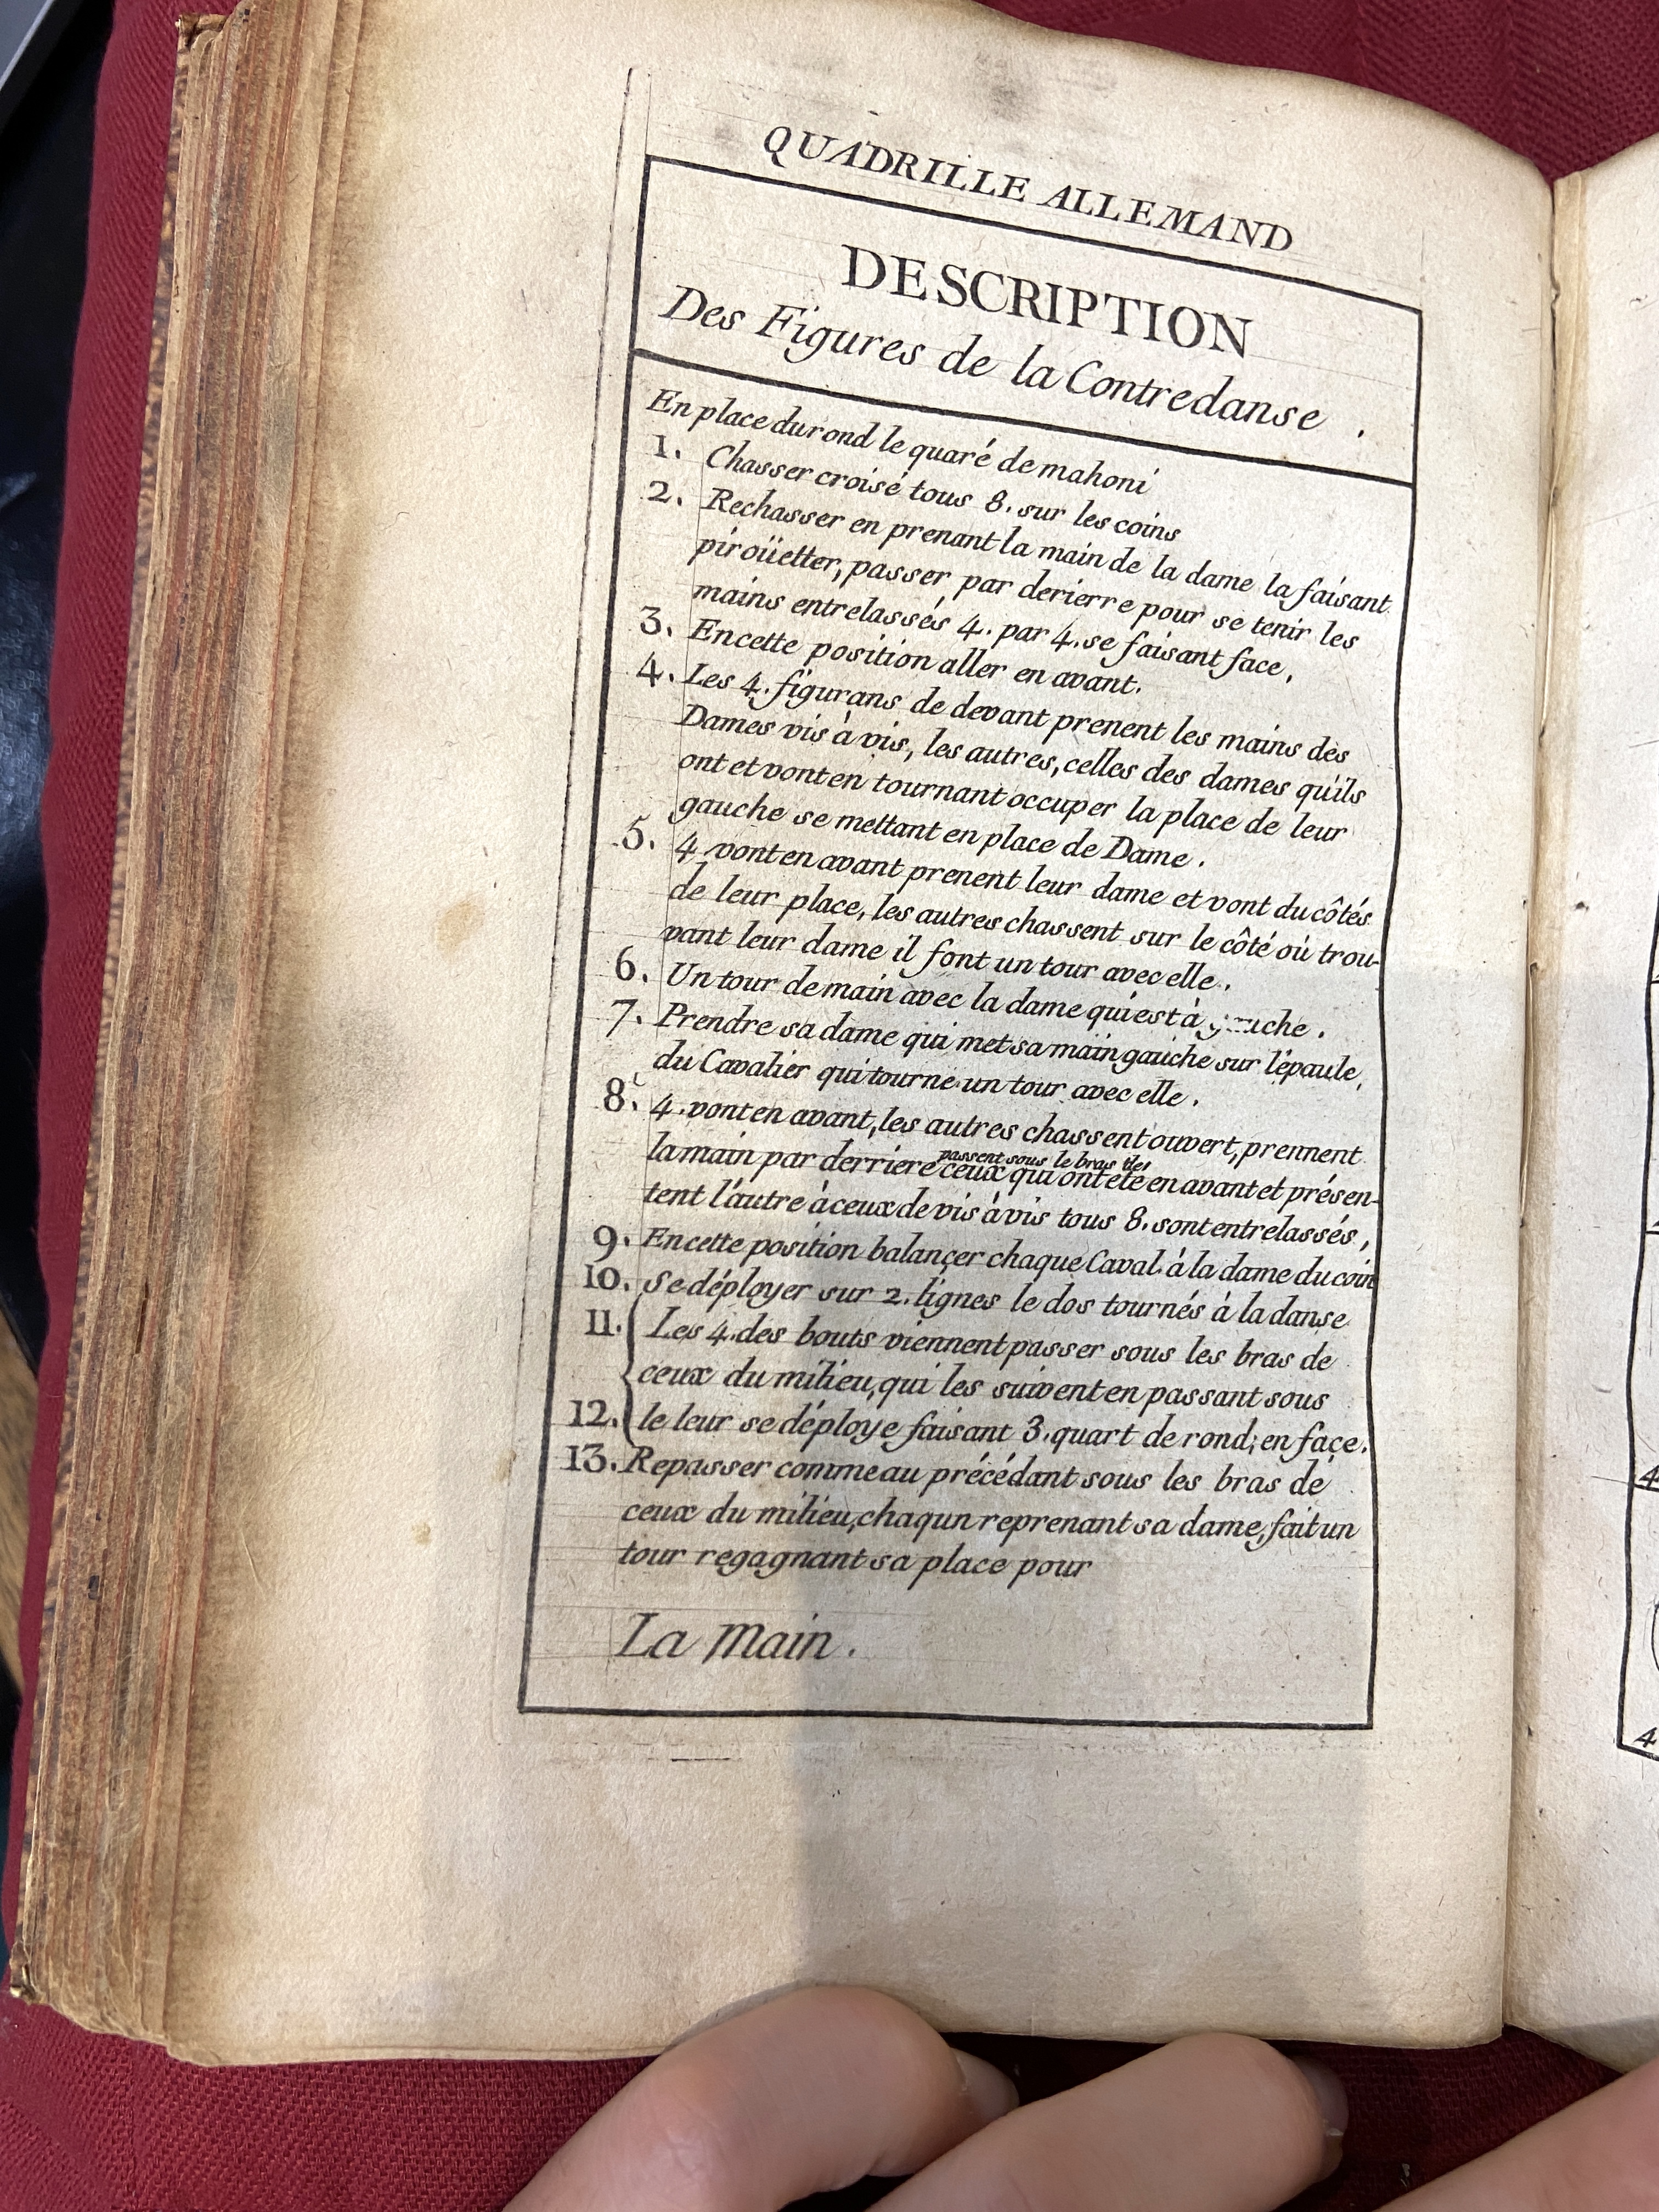 QUADRILLE ALLEMAND
DESCRIPTION
Des Figures de la Contredanse .
En place du rond le quaré de mahoni
1. Chasser croisé tous 8. sur les coins
2. Rechasser en prenant la main de la dame la faisant
piroüetter, passer par derierre pour se tenir les
mains entrelassés 4. par 4. se faisant face,
3. En cette position aller en avant.
4. Les 4. figurans de devant prenent les mains des
Dames vis à vis, les autres, celles des dames qu'ils
ont et vont en tournant occuper la place de leur
gauche se mettant en place de Dame .
5. 4 vont en avant prenent leur dame et vont du côtés
de leur place, les autres chassent sur le côté où trou-
vant leur dame il font un tour avec elle .
6. Un tour de main avec la dame qui est à gauche .
7. Prendre sa dame qui met sa main gauche sur l'épaule,
du Cavalier qui tourne un tour avec elle .
8. 4. vont en avant, les autres chassent ouvert, prennent
passent sous le bras des
la main par derriere ceux qui ont été en avant et présen-
tent l'autre à ceux de vis à vis tous 8. sont entrelassés,
9. En cette position balançer chaque Caval. à la dame du coin
10. Se déployer sur 2. lignes le dos tournés à la danse
11. Les 4. des bouts viennent passer sous les bras de
ceux du milieu, qui les suivent en passant sous
12. le leur se déploye faisant 3. quart de rond; en façe.
13. Repasser comme au précédant sous les bras de
ceux du milieu, chaqun reprenant sa dame, fait un
tour regagnant sa place pour
La Main .
4
4